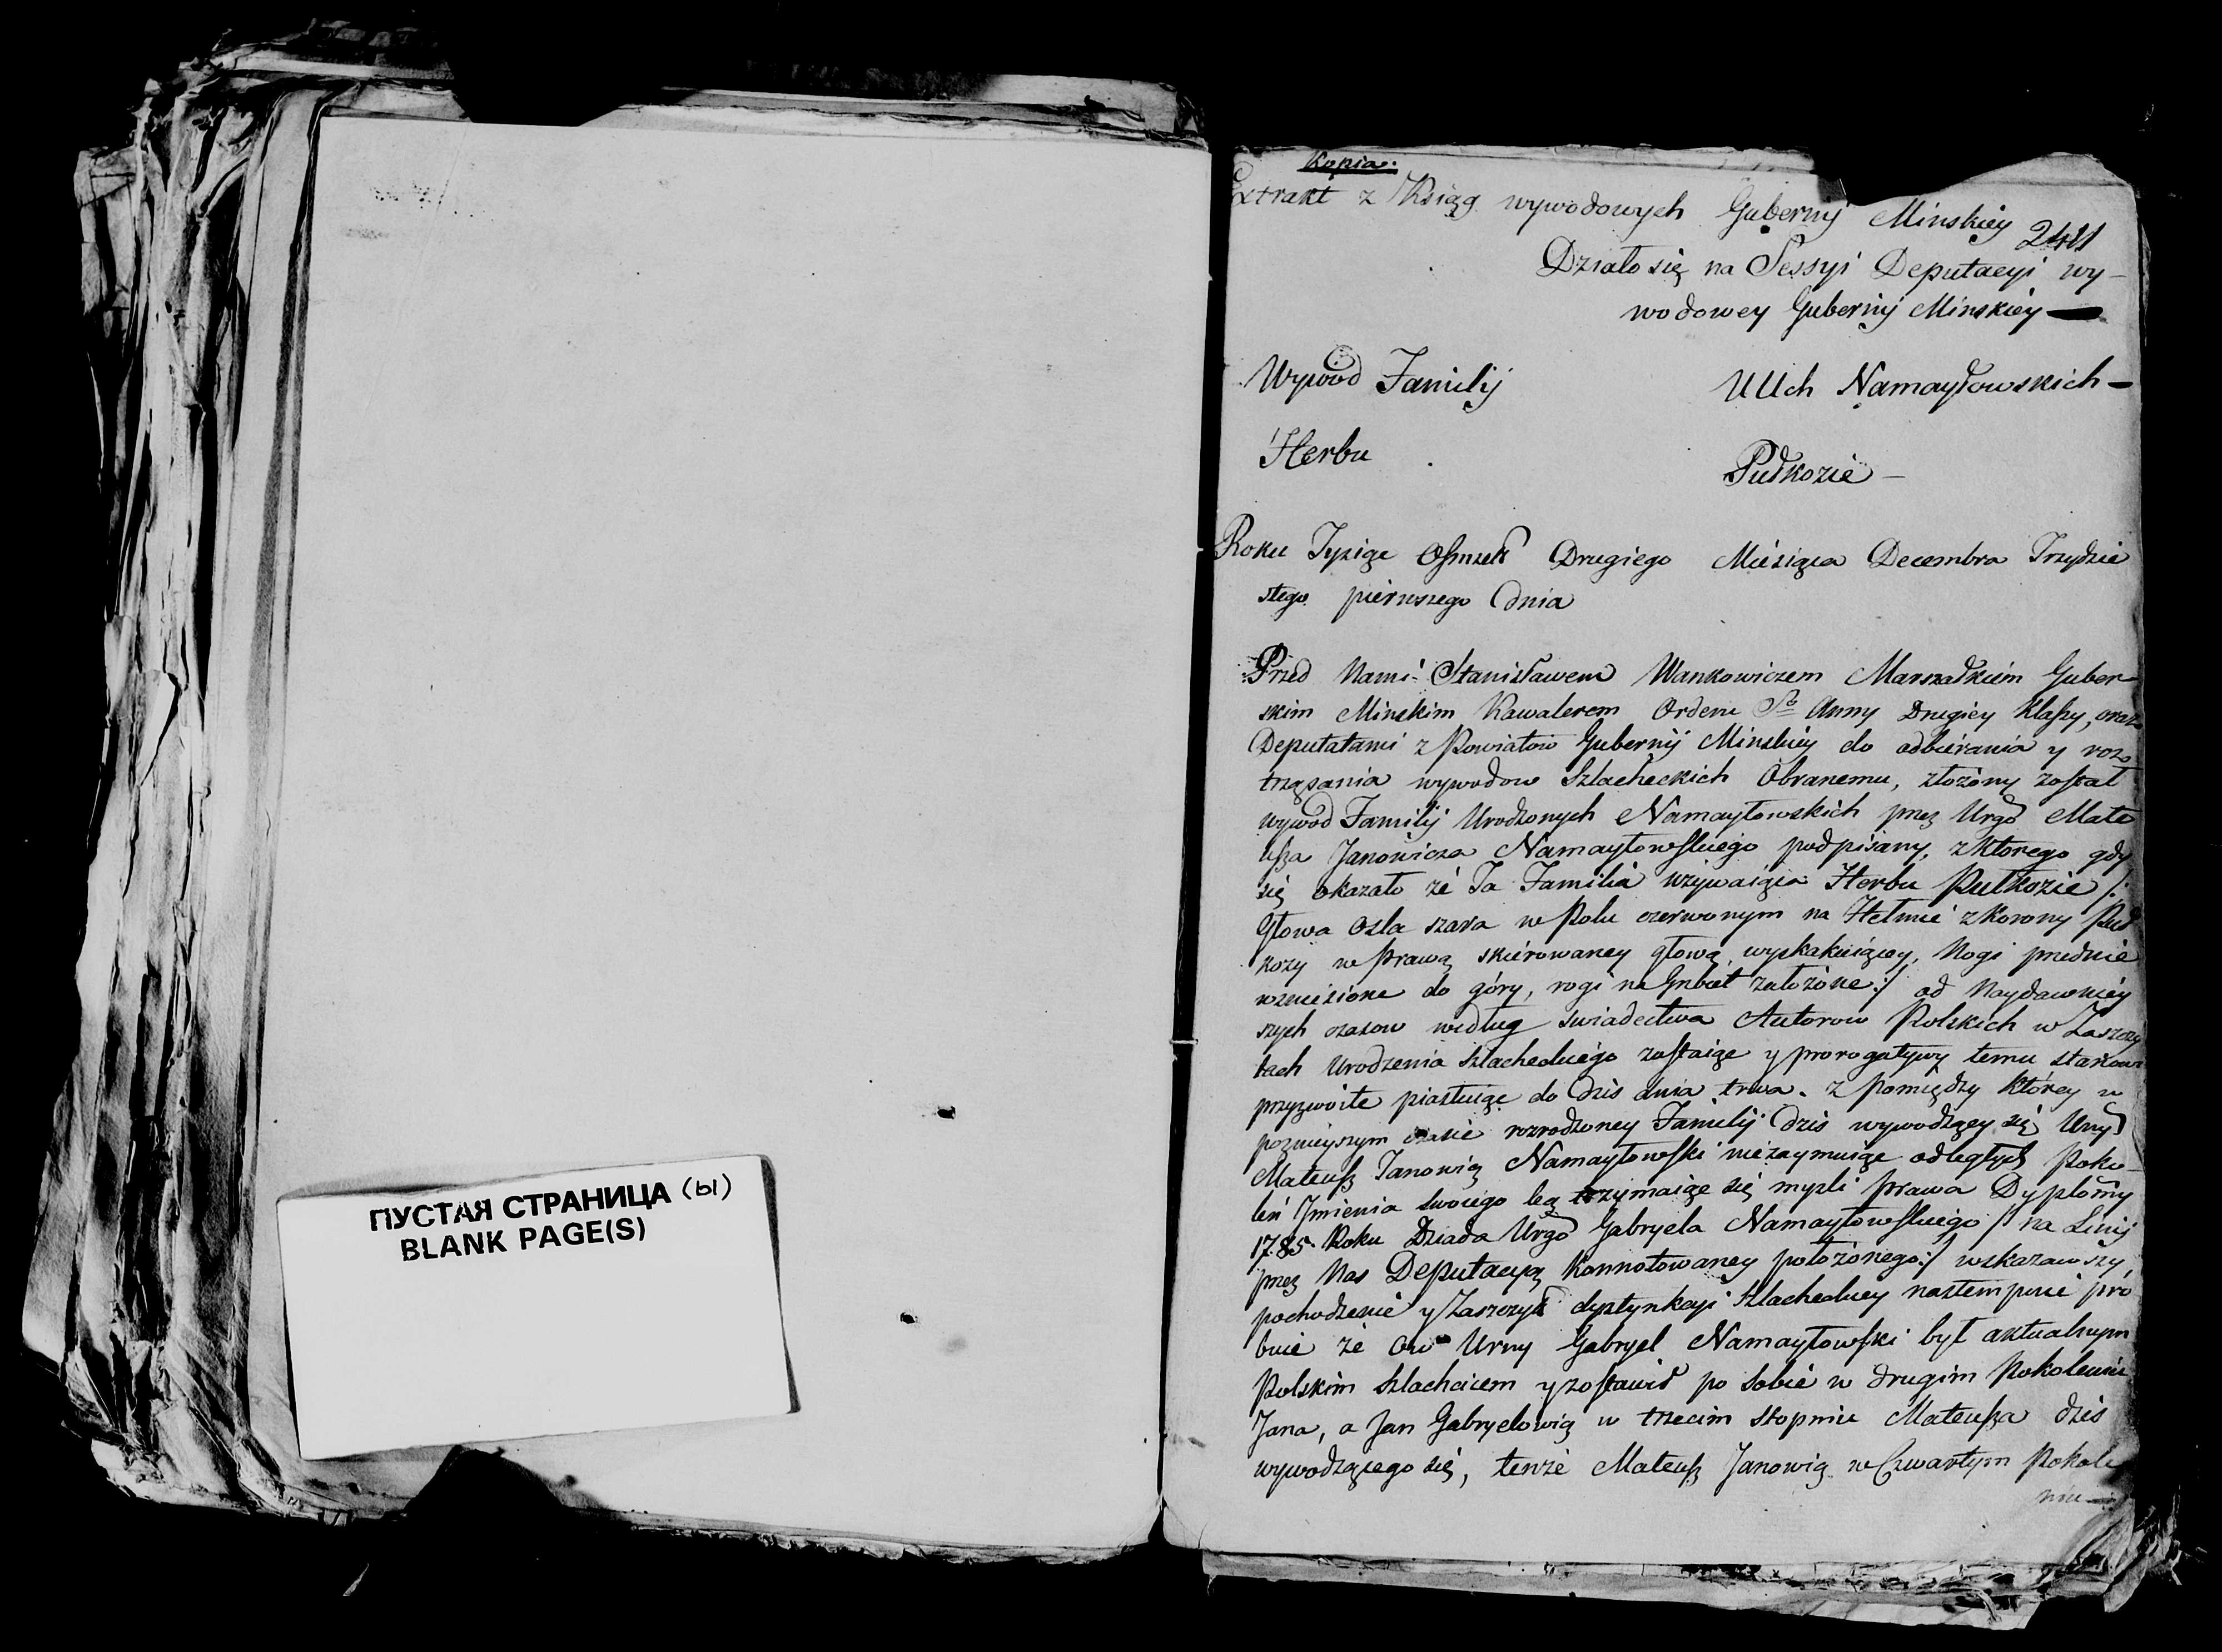 ПУСТАЯ СТРАНИЦА (Ы)
BLANK PAGE(S)
Kopia.
Extrakt z Xiąg wywodowych Gubernij Minskiey
2411
Działo się na Sessyi Deputacyi wy-
wodowey Gubernij Minskiey
Wywod Familij
UUch Namayłowskich
Herbu
Pułkozie
Roku Tysiąc Osmset Drugiego Miesiąca Decembra Trzydzie
stego pierwszego dnia
Przed Nami Stanisławem Wankowiczem Marszałkiem Guber
skim Minskim Kawalerem Orderu Sº Anny Drugiey Klassy, oraz
Deputatami z Powiatow Gubernij Minskiey do odbierania y roz
trząsania wywodow Szlacheckich Obranemu, złożony został
wywod Familij Urodzonych Namayłowskich przez Urgo Mate
usza Janowicza Namayłowskiego podpisany, z ktorego gdy
się okazało że Ta Familia używaiąca Herbu Pułkozie /:
Głowa Osla szara w Polu czerwonym na Hełmie z korony Puł
kozy w prawą skierowaney głową, wyskakuiącey, Nogi przednie
wzniesione do góry, rogi na Grzbiet założone:/ od Naydawniey
szych czasow według swiadectwa Autorow Polskich w Zaszczy
tach Urodzenia Szlacheckiego zostaiąc y prorogatywy temu stanowi
przyzwoite piastuiąc do dzis dnia trwa. z pomiędzy ktorey w
poznieyszym czasie rozrodzoney Familij dzis wywodzący się Urny
Mateusz Janowicz Namayłowski niezaymuiąc odległych Poko-
leń Imienia swoiego lecz trzymaiąc się mysli prawa Dyplomy
1785 Roku Dziada Urgo Gabryela Namayłowskiego /: na Linij
przez Nas Deputacyą konnotowaney położonego:/ wskazawszy
pochodzenie y Zaszczyt dystynkcyi Szlacheckiey nastempnie pro
buie że Ow Urny Gabryel Namayłowski był aktualnym
Polskim Szlachcicem y zostawił po sobie w drugim Pokoleniu
Jana, a Jan Gabryelowicz w trzecim stopniu Mateusza dzis
wywodzącego się, tenże Mateusz Janowicz w Czwartym Pokole
niu